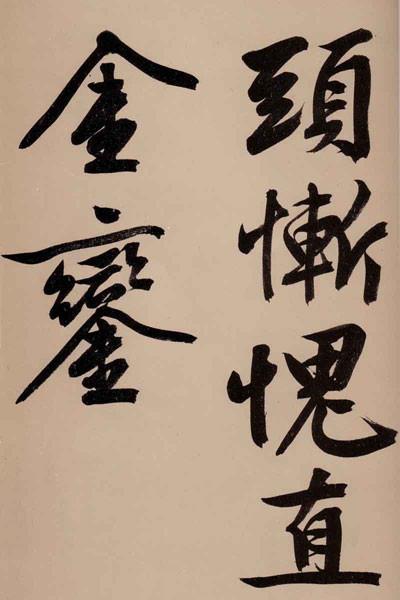 頭慚愧直
金鑾